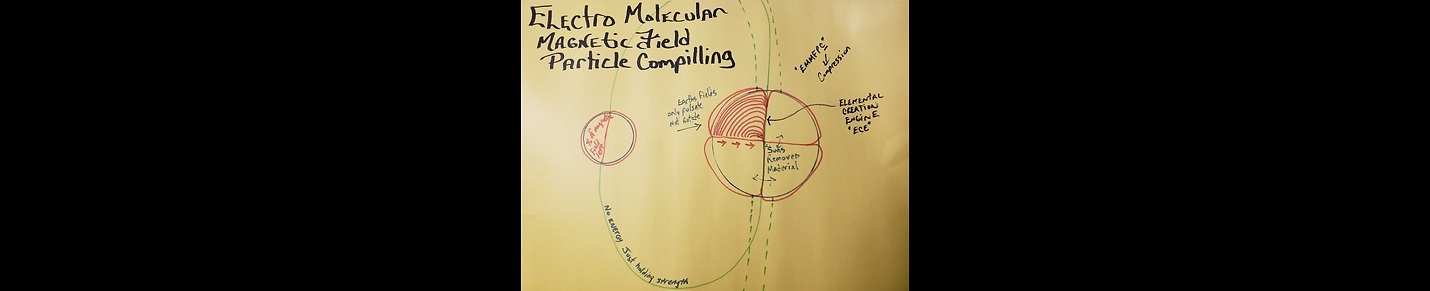 Electro Molecular
Magnetic Field
Particle Compilling
"EMMFPC"
Compression
Earths Fields
only pulsate
Not Rotate
ELEMENTAL
CREATION
ENGINE
"ECE"
Suns
Removes
Material
of magnetic
No ENERGY Just holding strength